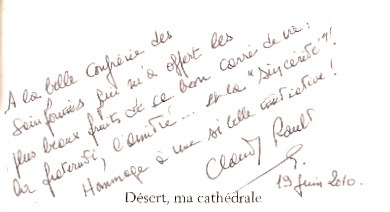 A la belle Confrérie des
Sainfoinés qui m'a offert les
plus beaux fruits de ce bon carré de vie :
la fraternité, l'amitié... et la "sincérité"!
Hommage à une si belle initiative!
Claude Rault
19 juin 2010.
Désert, ma cathédrale